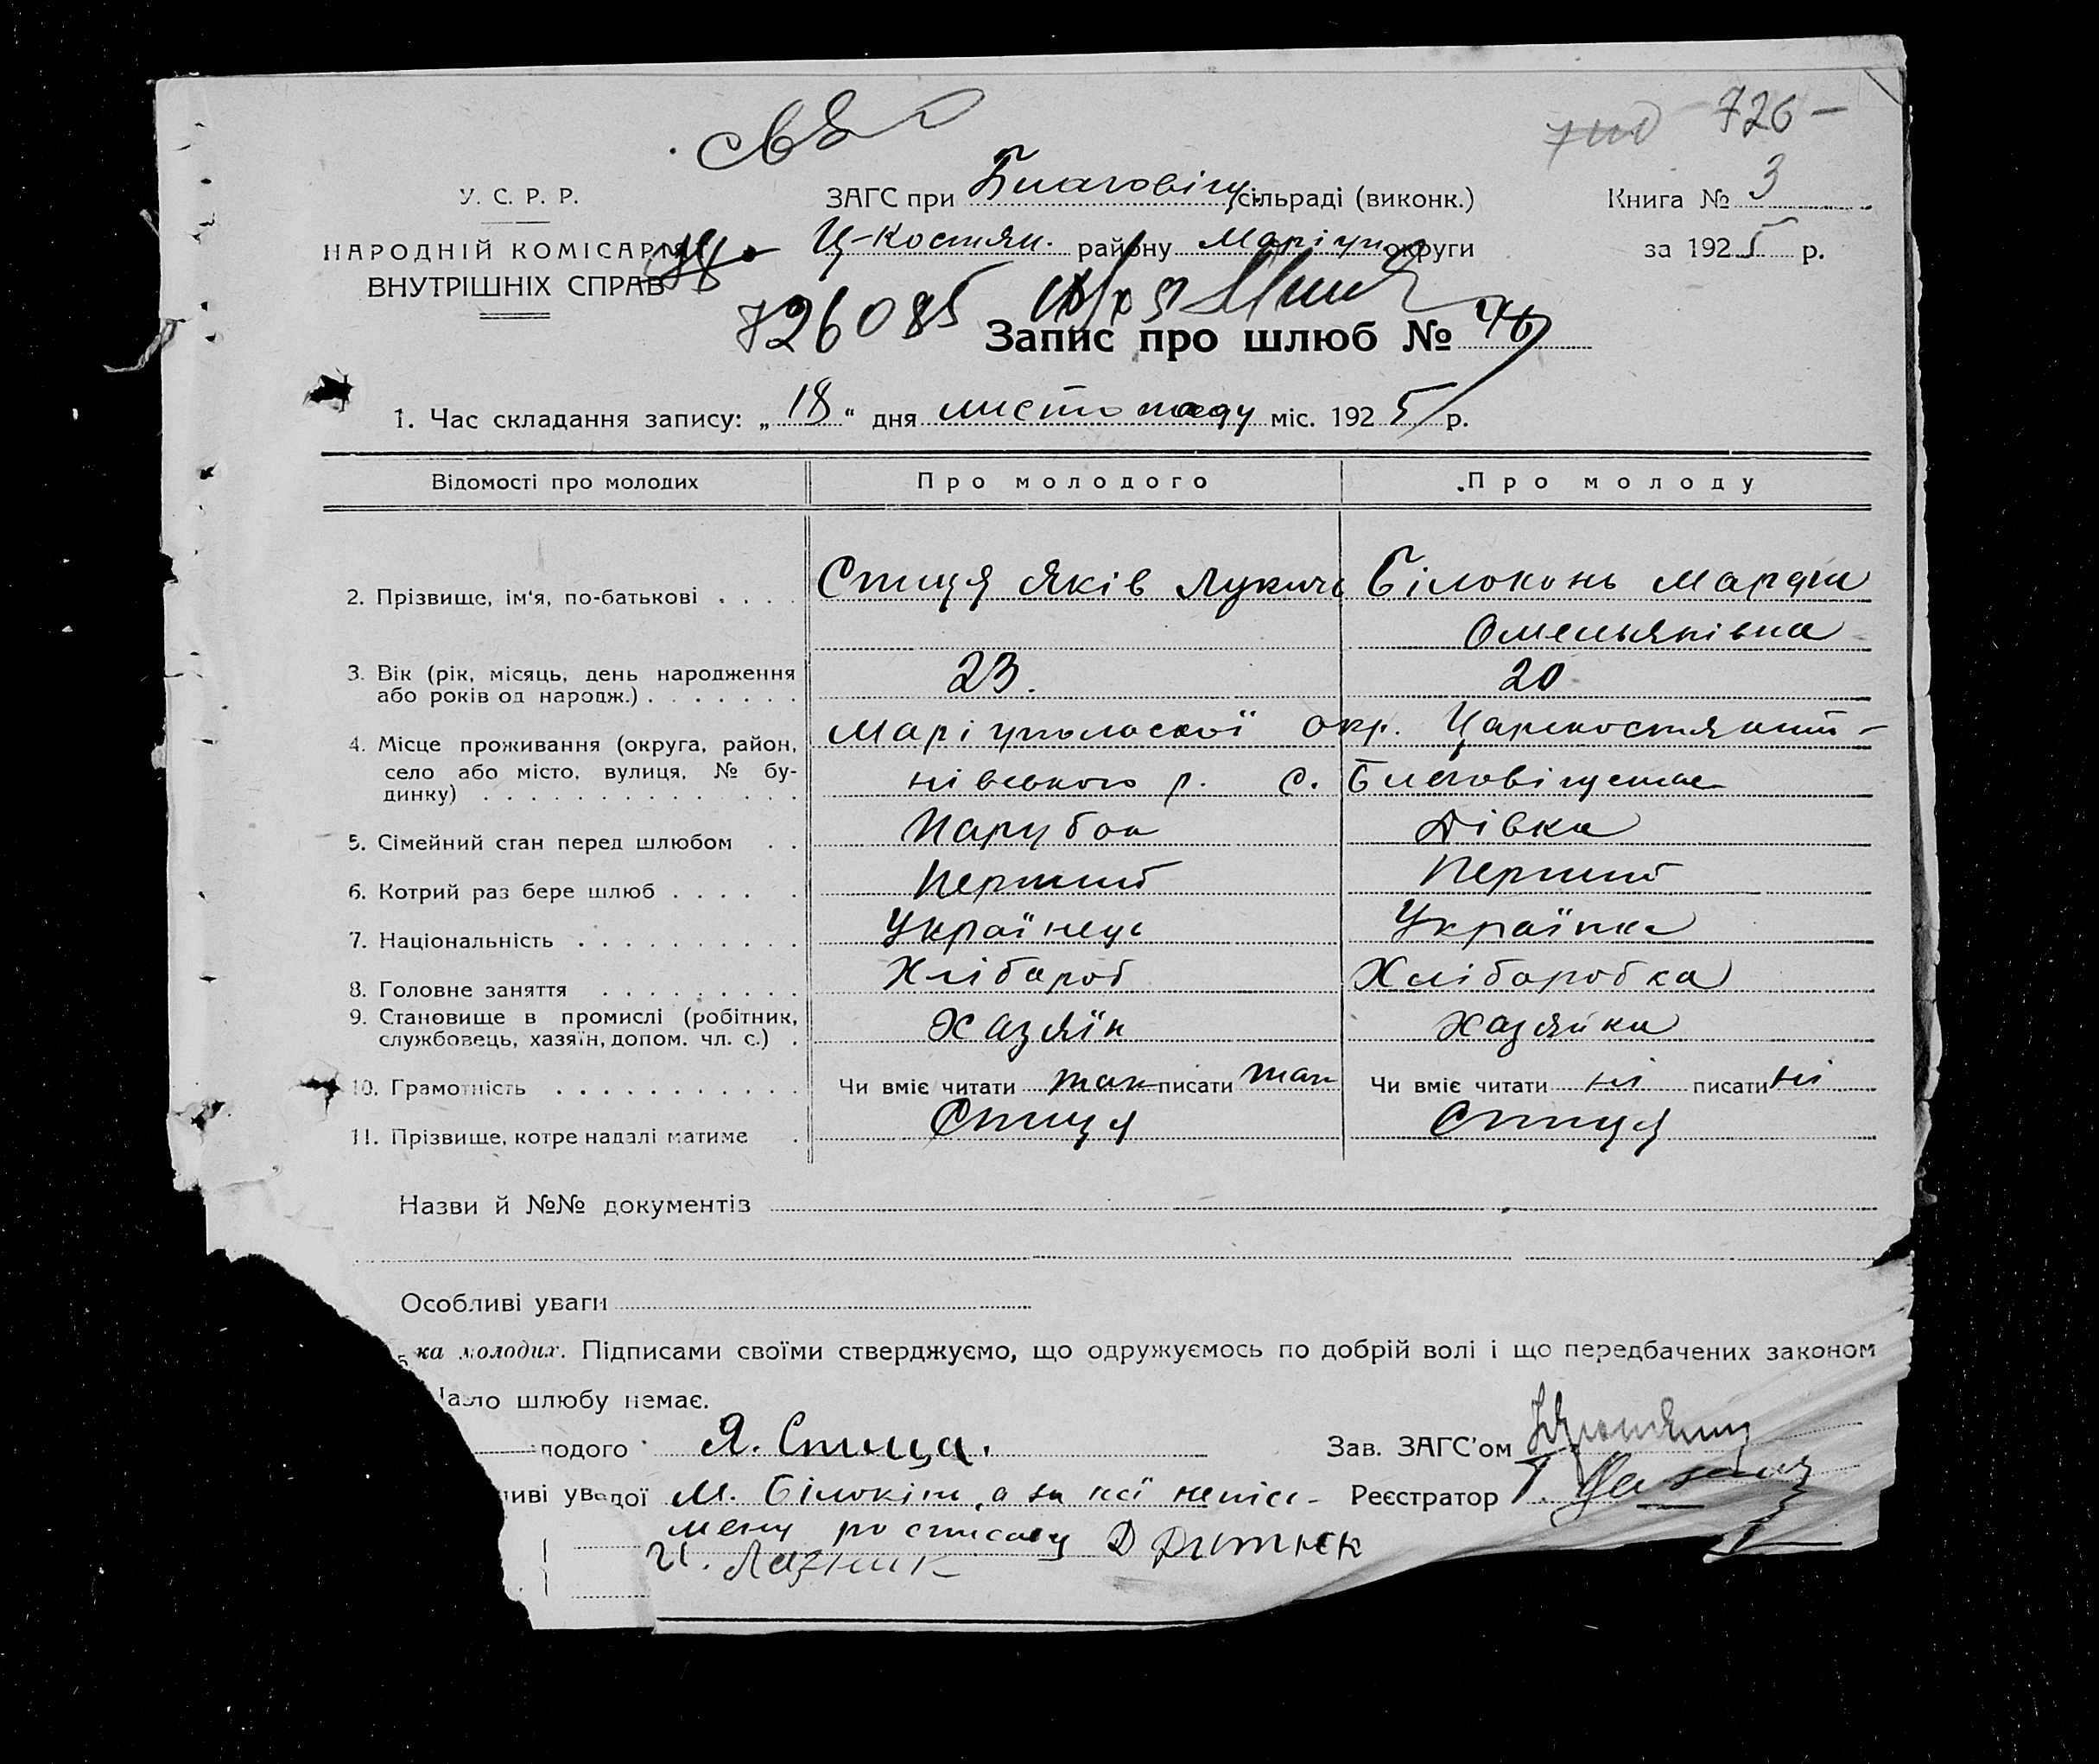 726 —
У. С. Р. Р.
ЗАГС при Благовіщ. сільраді (виконк.)
Книга № 3
НАРОДНІЙ КОМІСАРІЯТ
Ц-Костян. району Маріуп. округи
за 1925 р.
ВНУТРІШНІХ СПРАВ
726085
Запис про шлюб № 46
1. Час складання запису: „18“ дня листопаду міс. 1925 р.
Відомості про молодих
Про молодого
Про молоду
2. Прізвище, ім'я, по-батькові . . . .
Спиця Яків Лукич
Білоконь Марфа
Омельянівна
3. Вік (рік, місяць, день народження
або років од народж.) . . . . . . .
23.
20
4. Місце проживання (округа, район,
село або місто, вулиця, № бу-
динку) . . . . . . . . . . . . . .
Маріупольської окр. Царекостянти-
нівського р. с. Благовіщенка
5. Сімейний стан перед шлюбом . .
Парубок
Дівка
6. Котрий раз бере шлюб . . . . .
Перший
Перший
7. Національність . . . . . . . . . .
Українець
Українка
8. Головне заняття . . . . . . . . .
Хлібороб
Хліборобка
9. Становище в промислі (робітник,
службовець, хазяїн, допом. чл. с.) .
Хазяїн
Хазяйка
10. Грамотність . . . . . . . . . . .
Чи вміє читати так писати так
Чи вміє читати ні писати ні
11. Прізвище, котре надалі матиме .
Спиця
Спиця
Назви й №№ документів
Особливі уваги
ка молодих. Підписами своїми стверджуємо, що одружуємось по добрій волі і що передбачених законом
шлюбу немає.
лодого Я. Спица.
Зав. ЗАГС'ом
иві ув дої М. Білокінь, а за неї неписс-
Реєстратор
мену росписавсь
И. Лазник